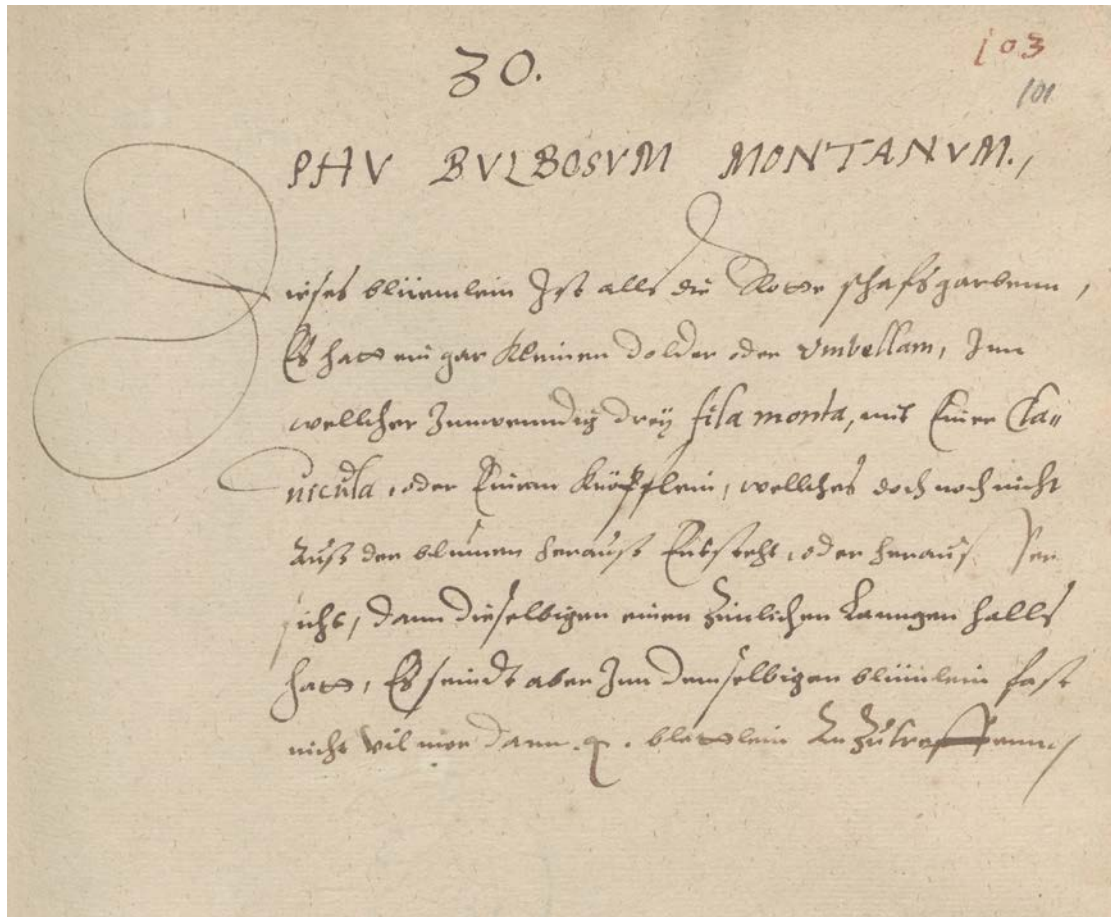 30.
103
101
PHV BVLBOSVM MONTANVM.,
Dieses blüemlein Ist allß die Rotte schafsgarbenn,
Es hatt ein gar kleinen dolder oder vmbellam, Inn
wellcher Innwenndig dreÿ fila monta, mit Einer Cla„
uicula, oder Einem knöpfflein, wellches doch noch nicht
Auß der blumen herauß Entsteht, oder herauß
sicht, dann dieselbigen einen zimlichen Lanngen halls
hatt, Es seindt aber Inn demselbigen blüemlein fast
nicht vil mer dann blettlein An Zutreffenn,